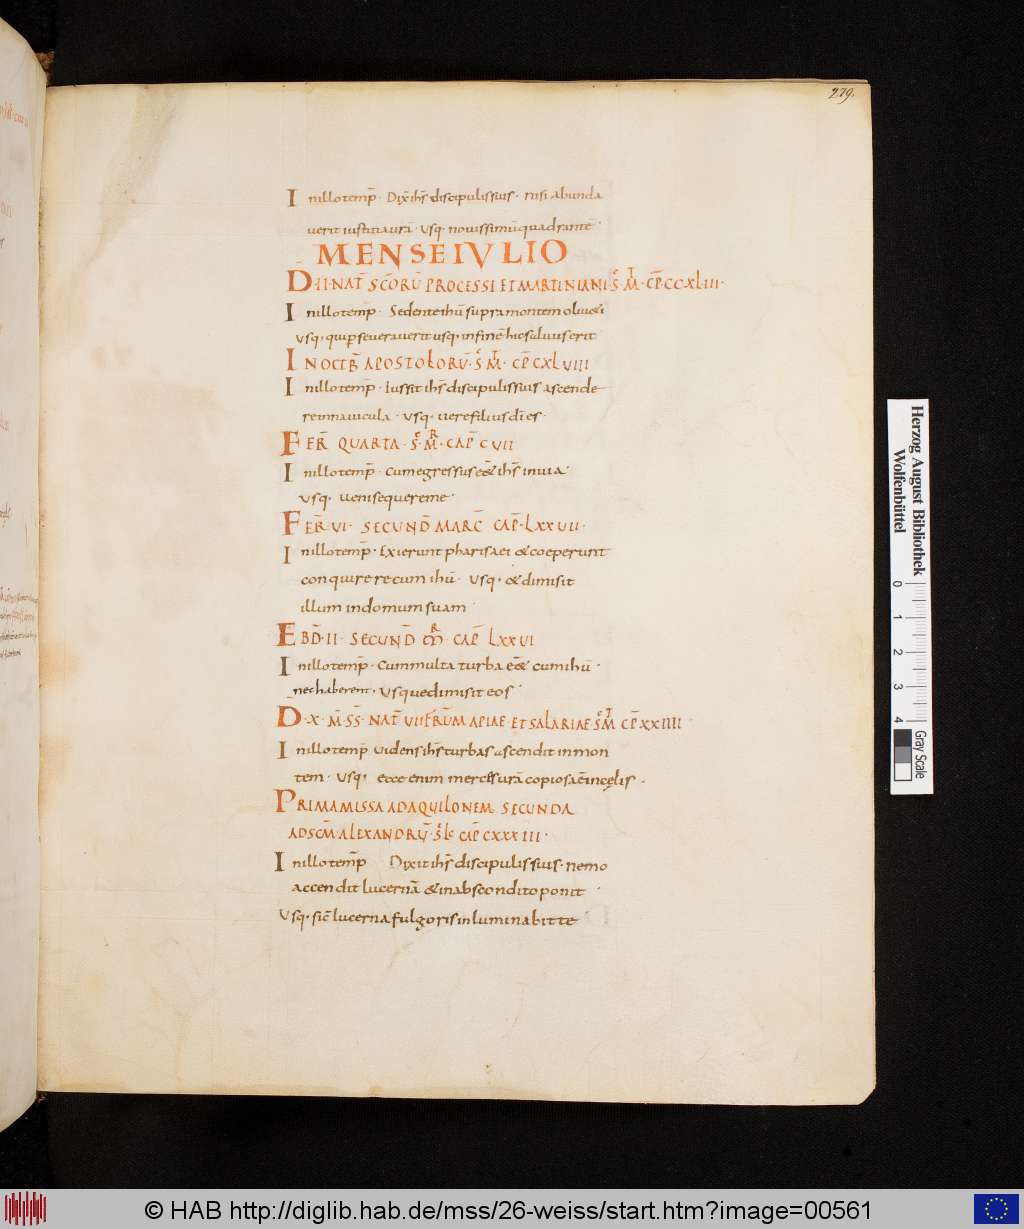 279.
I nillotemp̄ · Dix̄ ih̄s discipulissuis · nisi abunda
verit iustitiaurā · Usq· novissimū quadrantē ·
MENSE IVLIO
D̄·II·NAT̄ SC̄ORŪ PROCESSI ET MARTINIANI S̄ M̄ · CP̄·CCXLIII·
I nillotemp̄ · Sedente ihū supramontem oliu&i
usq· quip̄severaverit usq· infinē hicsaluuserit
I NOCTB̄ APOSTOLORŪ · S̄ M̄ · CP̄ CXLVIIII
I nillotemp̄ · Iussit ih̄s discipulissuis ascende
reinnavicula · usq· vere filius d̄i es ·
FER̄ QUARTA · S̄ · M̄ · CAP̄ CVII
I nillotemp̄ · Cumegressuse& ih̄s inuia ·
usq· uenisequereme ·
FER̄ VI · SECUND̄ MARC̄ CAP̄ · LXXVII ·
I nillotemp̄ · Exierunt pharisaei &coeperunt
conquirerecum ihū · Usq· &dimisit
illum indomum suam ·
EBD̄·II· SECUND̄ M̄R CAP̄ LXXVI
I nillotemp̄ · Cummulta turba e&̄ cumihū ·
nechaberent · Usquedimisit eos ·
D̄·X· M̄·SS̄· NAT̄ VII FRŪM APIAE · ET SALARIAE S̄ M̄ CP̄ XXIIII
I nillotemp̄ uidens ih̄s turbas ascendit inmon
tem · Usq· ecce enim mercesurā copiosaē incęlis ·
PRIMA MISSA AD AQUILONEM SECUNDA
AD SCM̄ ALEXANDRŪ · S̄ Lc̄ CAP̄ CXXXIII ·
I nillotemp̄ Dixit ih̄s discipulissuis · nemo
accendit lucernā &inabscondito ponit ·
Usq· sic̄ lucerna fulgoris inluminabit te
Herzog August Bibliothek
Wolfenbüttel
0 1 2 3 4
Gray Scale
© HAB http://diglib.hab.de/mss/26-weiss/start.htm?image=00561